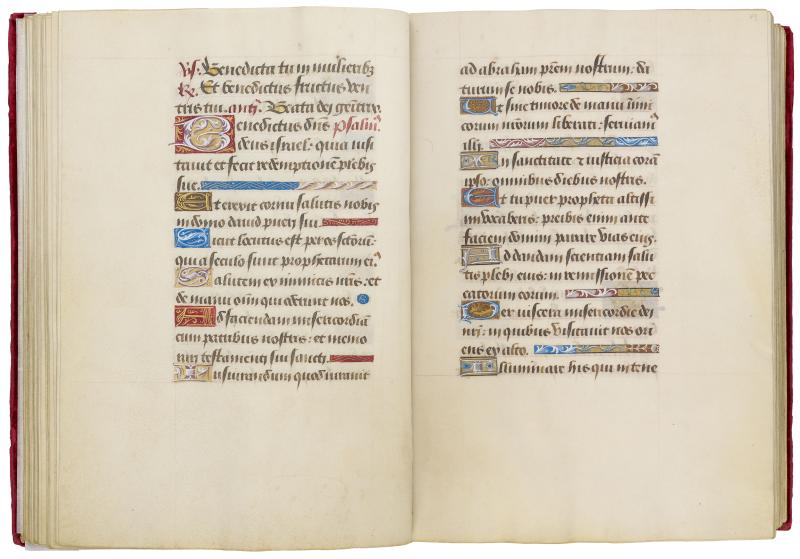 Vs. Benedicta tu in mulieribꝫ
Re. Et benedictus fructus ven
tris tui. antˀ. Beata dei genitrix.
Benedictus dn̄s Psalmˀ.
deus israel: quia visi
tauit et fecit redemptionē plebis
sue.
Et erexit cornu salutis nobis
in domo dauid pueri sui.
Sicut locutus est. per os sctōrū:
qui a seculo sunt prophetarum eiˀ.
Salutem ex inimicis nr̄is: et
de manu oīm̄ qui oderunt nos.
Ad faciendam misericordiā
cum patribus nostris: et memo
rari testamenti sui sancti.
Iusiurandum quod iurauit
ad abraham prēm nostrum: da
turum se nobis.
Ut sine timore de manu inīmi
corum nr̄orum liberati: seruiamˀ
illi.
In sanctitate ⁊ iusticia corā
ipso: omnibus diebus nostris.
Et tu puer propheta altissi
mi vocaberis: preibis enim ante
faciem domini parare vias eius.
Ad dandam scientiam salu
tis plebi eius: in remissionē pec
catorum eorum.
Per viscera misericordie dei
nr̄i: in quibus visitauit nos ori
ens ex alto.
Illuminare his qui in tene